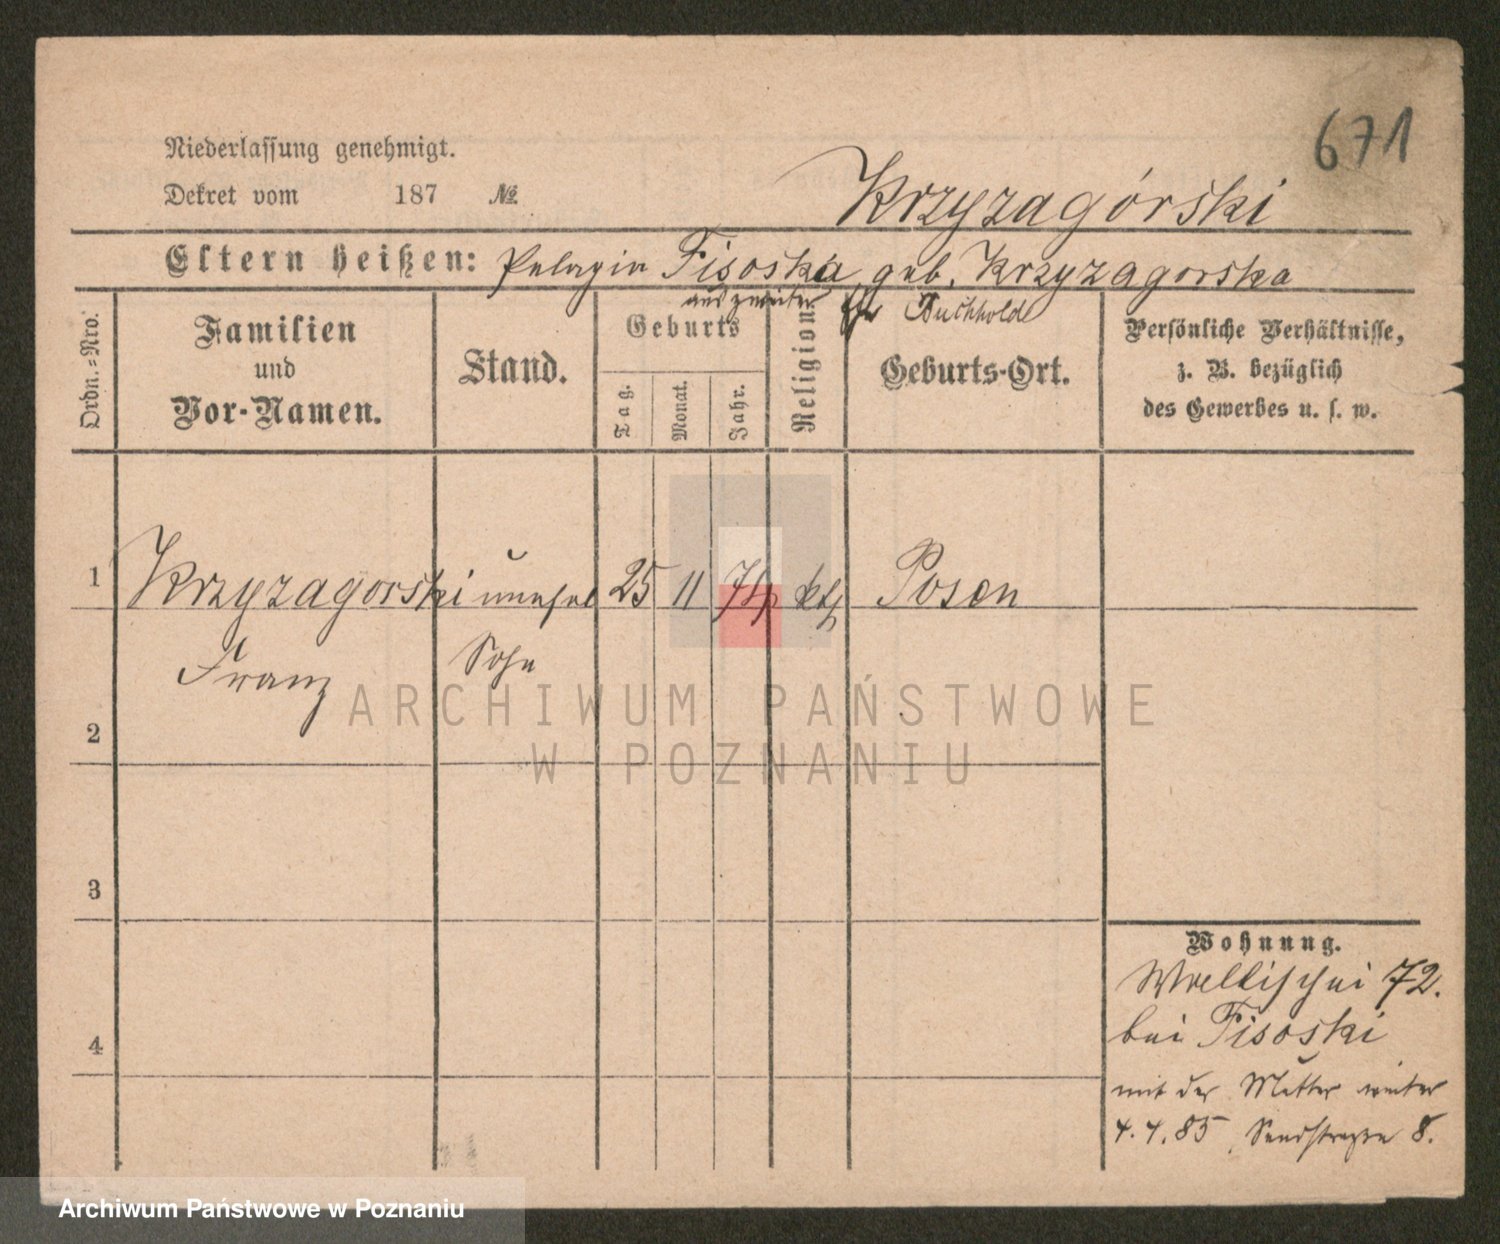 671
Niederlassung genehmigt.
Dekret vom 187 №
Krzyzagórski
Eltern heißen: Pelagia Fisoska geb. Krzyzagorska
aus zweiter Ehe Buchhold
Ordn.-Nro.
Familien und Vor-Namen.
Stand.
Geburts
Tag.
Monat.
Jahr.
Religion
Geburts-Ort.
Persönliche Verhältnisse,
z. B. bezüglich
des Gewerbes u. s. w.
1 Krzyzagorski unehel 25 11 74 kth Posen
Franz Sohn
2
3
4
Wohnung.
Wallischei 72.
bei Fisoski
mit der Mutter weiter
4.4.85, Sandstraße 8.
ARCHIWUM PAŃSTWOWE
W POZNANIU
Archiwum Państwowe w Poznaniu